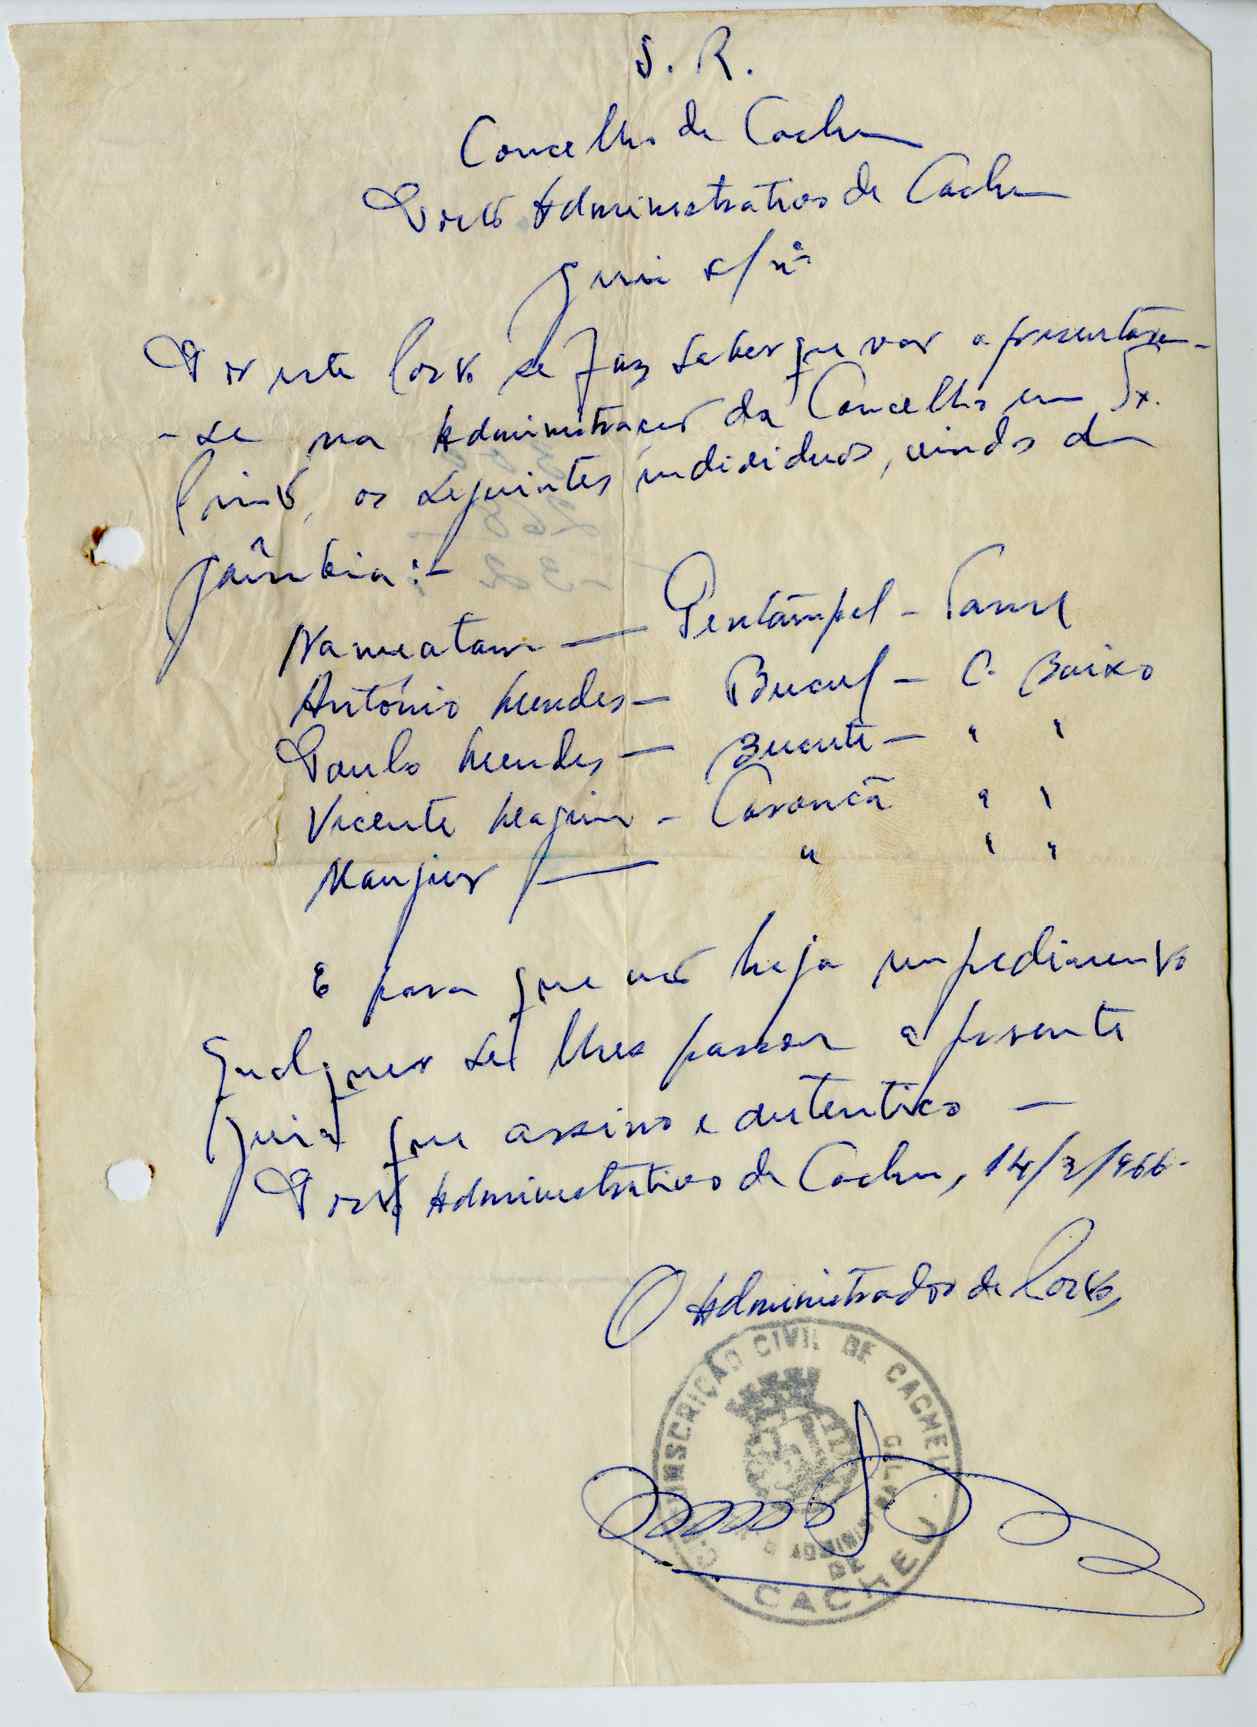 S. R.
Concelho de Cacheu
Posto Administrativo de Cacheu
Guia s/nº
Por este Posto se faz saber que vão apresentarem-
-se na Administração do Concelho em Tx.
Pinto, os seguintes individuos, vindos da
Gâmbia:-
— Pentâmpel -
António Mendes — Bucul — C. Baixo
Paulo Mendes — Bucute — " "
Vicente - Caroncã " "
Manjur — " " "
E para que não haja impedimento
qualquer se lhes passou a presente
guia que assino e autentico —
Posto Administrativo de Cacheu, 14/3/966-
O Administrador de Posto,
CIRCUNSCRIÇÃO CIVIL DE CACHEU
POSTO ADMINISTRATIVO
DE
CACHEU